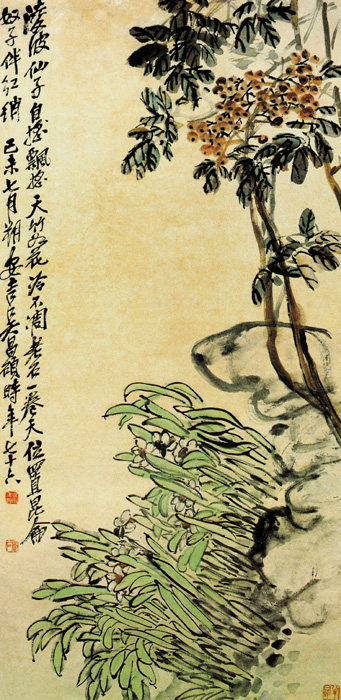 淩波仙子自搖飄搖天竹花冷不凋老石一卷天位置昆侖
奴子伴紅綃 己未七月朔安吉吳昌碩時年七十六